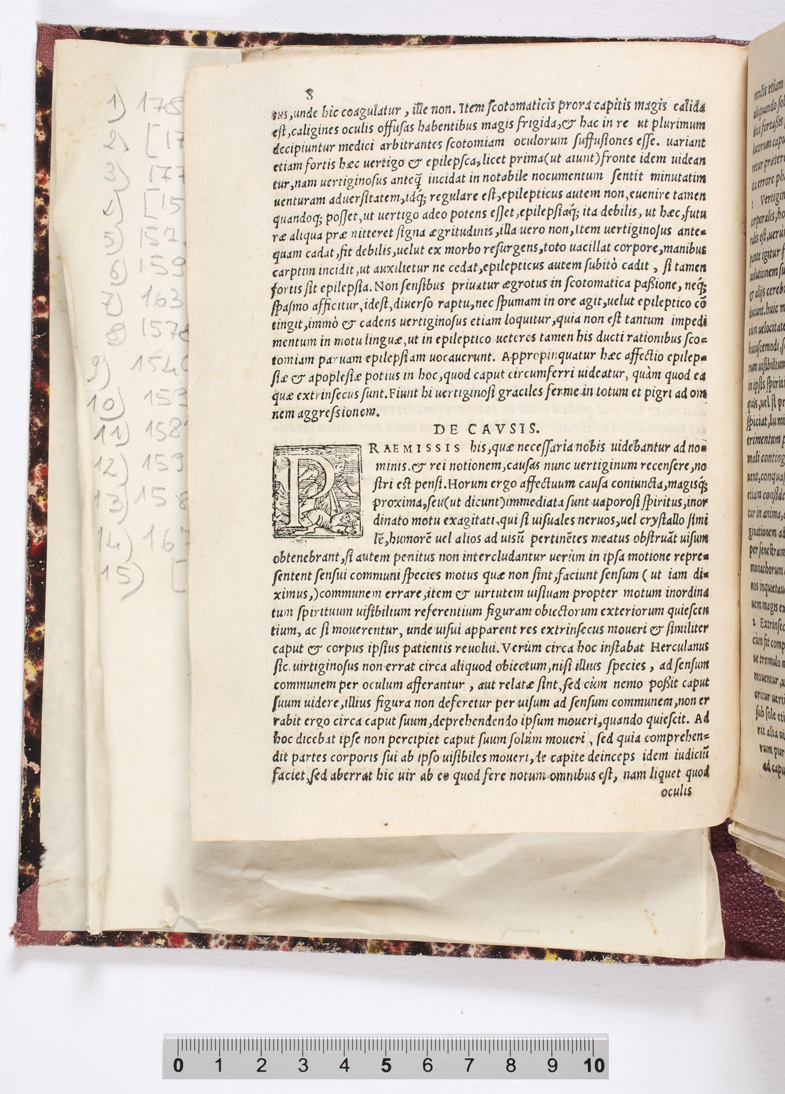 1) 178
2) [17
3) 177
4) [15
5) 157
6) 159
7) 163
8) 1578
9) 1546
10) 159
11) 158
12) 159
13) 158
14) 167
15) [
8
sus, unde hic coagulatur, ille non. Item ſcotomaticis prora capitis magis calida
eſt, caligines oculis offuſas habentibus magis frigida, & hac in re ut plurimum
decipiuntur medici arbitrantes ſcotomiam oculorum ſuffuſiones eſſe. uariant
etiam fortis hæc uertigo & epilepſca, licet prima (ut aiunt) fronte idem uidean
tur, nam uertiginoſus anteq̃ incidat in notabile nocumentum ſentit minutatim
uenturam aduerſitatem, idq; regulare eſt, epilepticus autem non, euenire tamen
quandoq; poſſet, ut uertigo adeo potens eſſet, epilepſiaq; ita debilis, ut hæc, futu
ræ aliqua præ nitteret ſigna ægritudinis, illa uero non, Item uertiginoſus ante=
quam cadat, fit debilis, uelut ex morbo reſurgens, toto uacillat corpore, manibus
carptim incidit, ut auxilietur ne cedat, epilepticus autem ſubitò cadit, ſi tamen
fortis ſit epilepſia. Non ſenſibus priuatur ægrotus in ſcotomatica paßione, neq;
ſpaſmo afficitur, ideſt, diuerſo raptu, nec ſpumam in ore agit, uelut epileptico cõ
tingit, immò & cadens uertiginoſus etiam loquitur, quia non eſt tantum impedi
mentum in motu linguæ, ut in epileptico ueteres tamen his ducti rationibus ſco=
tomiam paruam epilepſiam uocauerunt. Appropinquatur hæc affectio epilep=
ſiæ & apopleſiæ potius in hoc, quod caput circumferri uideatur, quàm quod ea
quæ extrinſecus ſunt. Fiunt hi uertiginoſi graciles ferme in totum et pigri ad om
nem aggreſsionem.
DE CAVSIS.
PRAEMISSIS his, quæ neceſſaria nobis uidebantur ad no=
minis. & rei notionem, cauſas nunc uertiginum recenſere, no
ſtri eſt penſi. Horum ergo affectuum cauſa coniuncta, magisq;
proxima, ſeu (ut dicunt) immediata ſunt uaporoſi ſpiritus, inor
dinato motu exagitati, qui ſi uiſuales neruos, uel cryſtallo ſimi
lẽ, humorẽ uel alios ad uisũ pertinẽtes meatus obſtruãt uiſum
obtenebrant, ſi autem penitus non intercludantur uerùm in ipſa motione repre=
ſentent ſenſui communi ſpecies motus quæ non ſint, faciunt ſenſum (ut iam di=
ximus,) communem errare, item & uirtutem uiſiuam propter motum inordina
tum ſpirituum uiſibilium referentium figuram obiectorum exteriorum quieſcen
tium, ac ſi mouerentur, unde uiſui apparent res extrinſecus moueri & ſimiliter
caput & corpus ipſius patientis reuolui. Verùm circa hoc inſtabat Herculanus
ſic. uirtiginoſus non errat circa aliquod obiectum, niſi illius ſpecies, ad ſenſum
communem per oculum afferantur, aut relatæ ſint, ſed cùm nemo poßit caput
ſuum uidere, illius figura non deferetur per uiſum ad ſenſum communem, non er
rabit ergo circa caput ſuum, deprehendendo ipſum moueri, quando quieſcit. Ad
hoc dicebat ipſe non percipiet caput ſuum ſolùm moueri, ſed quia comprehen=
dit partes corporis ſui ab ipſo uiſibiles moueri, de capite deinceps idem iudiciũ
faciet, ſed aberrat hic uir ab eo quod fere notum omnibus eſt, nam liquet quod
oculis
0 1 2 3 4 5 6 7 8 9 10